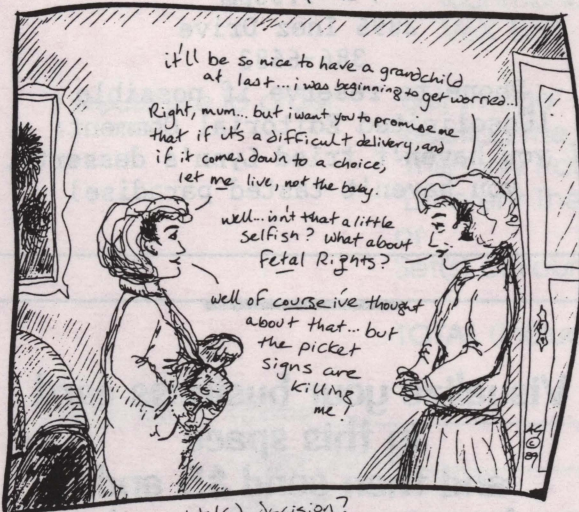 it'll be so nice to have a grandchild
at last... i was beginning to get worried.
Right, mum... but i want you to promise me
that if it's a difficult delivery, and
if it comes down to a choice,
let me live, not the baby.
well... isn't that a little
selfish? What about
Fetal Rights?
well of course i've thought
about that... but
the picket
signs are
killing
me!
©
89
decision?